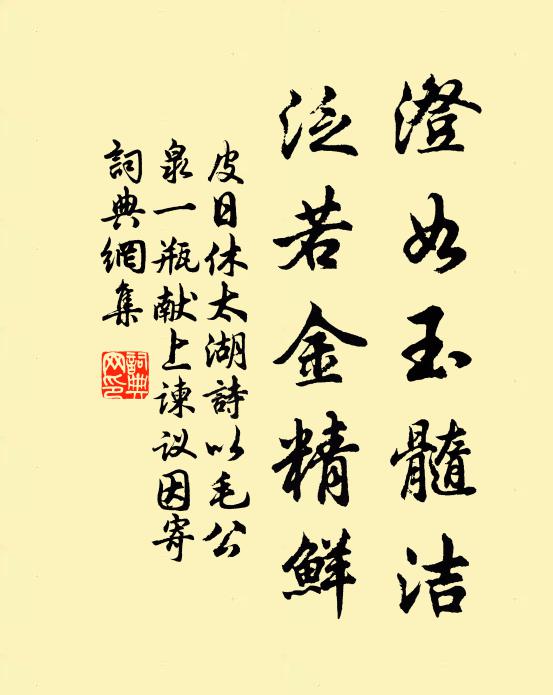 澄如玉髓洁
泛若金精鮮
皮日休太湖詩以毛公
泉一瓶献上谏议因寄
詞典網集
詞典
网印